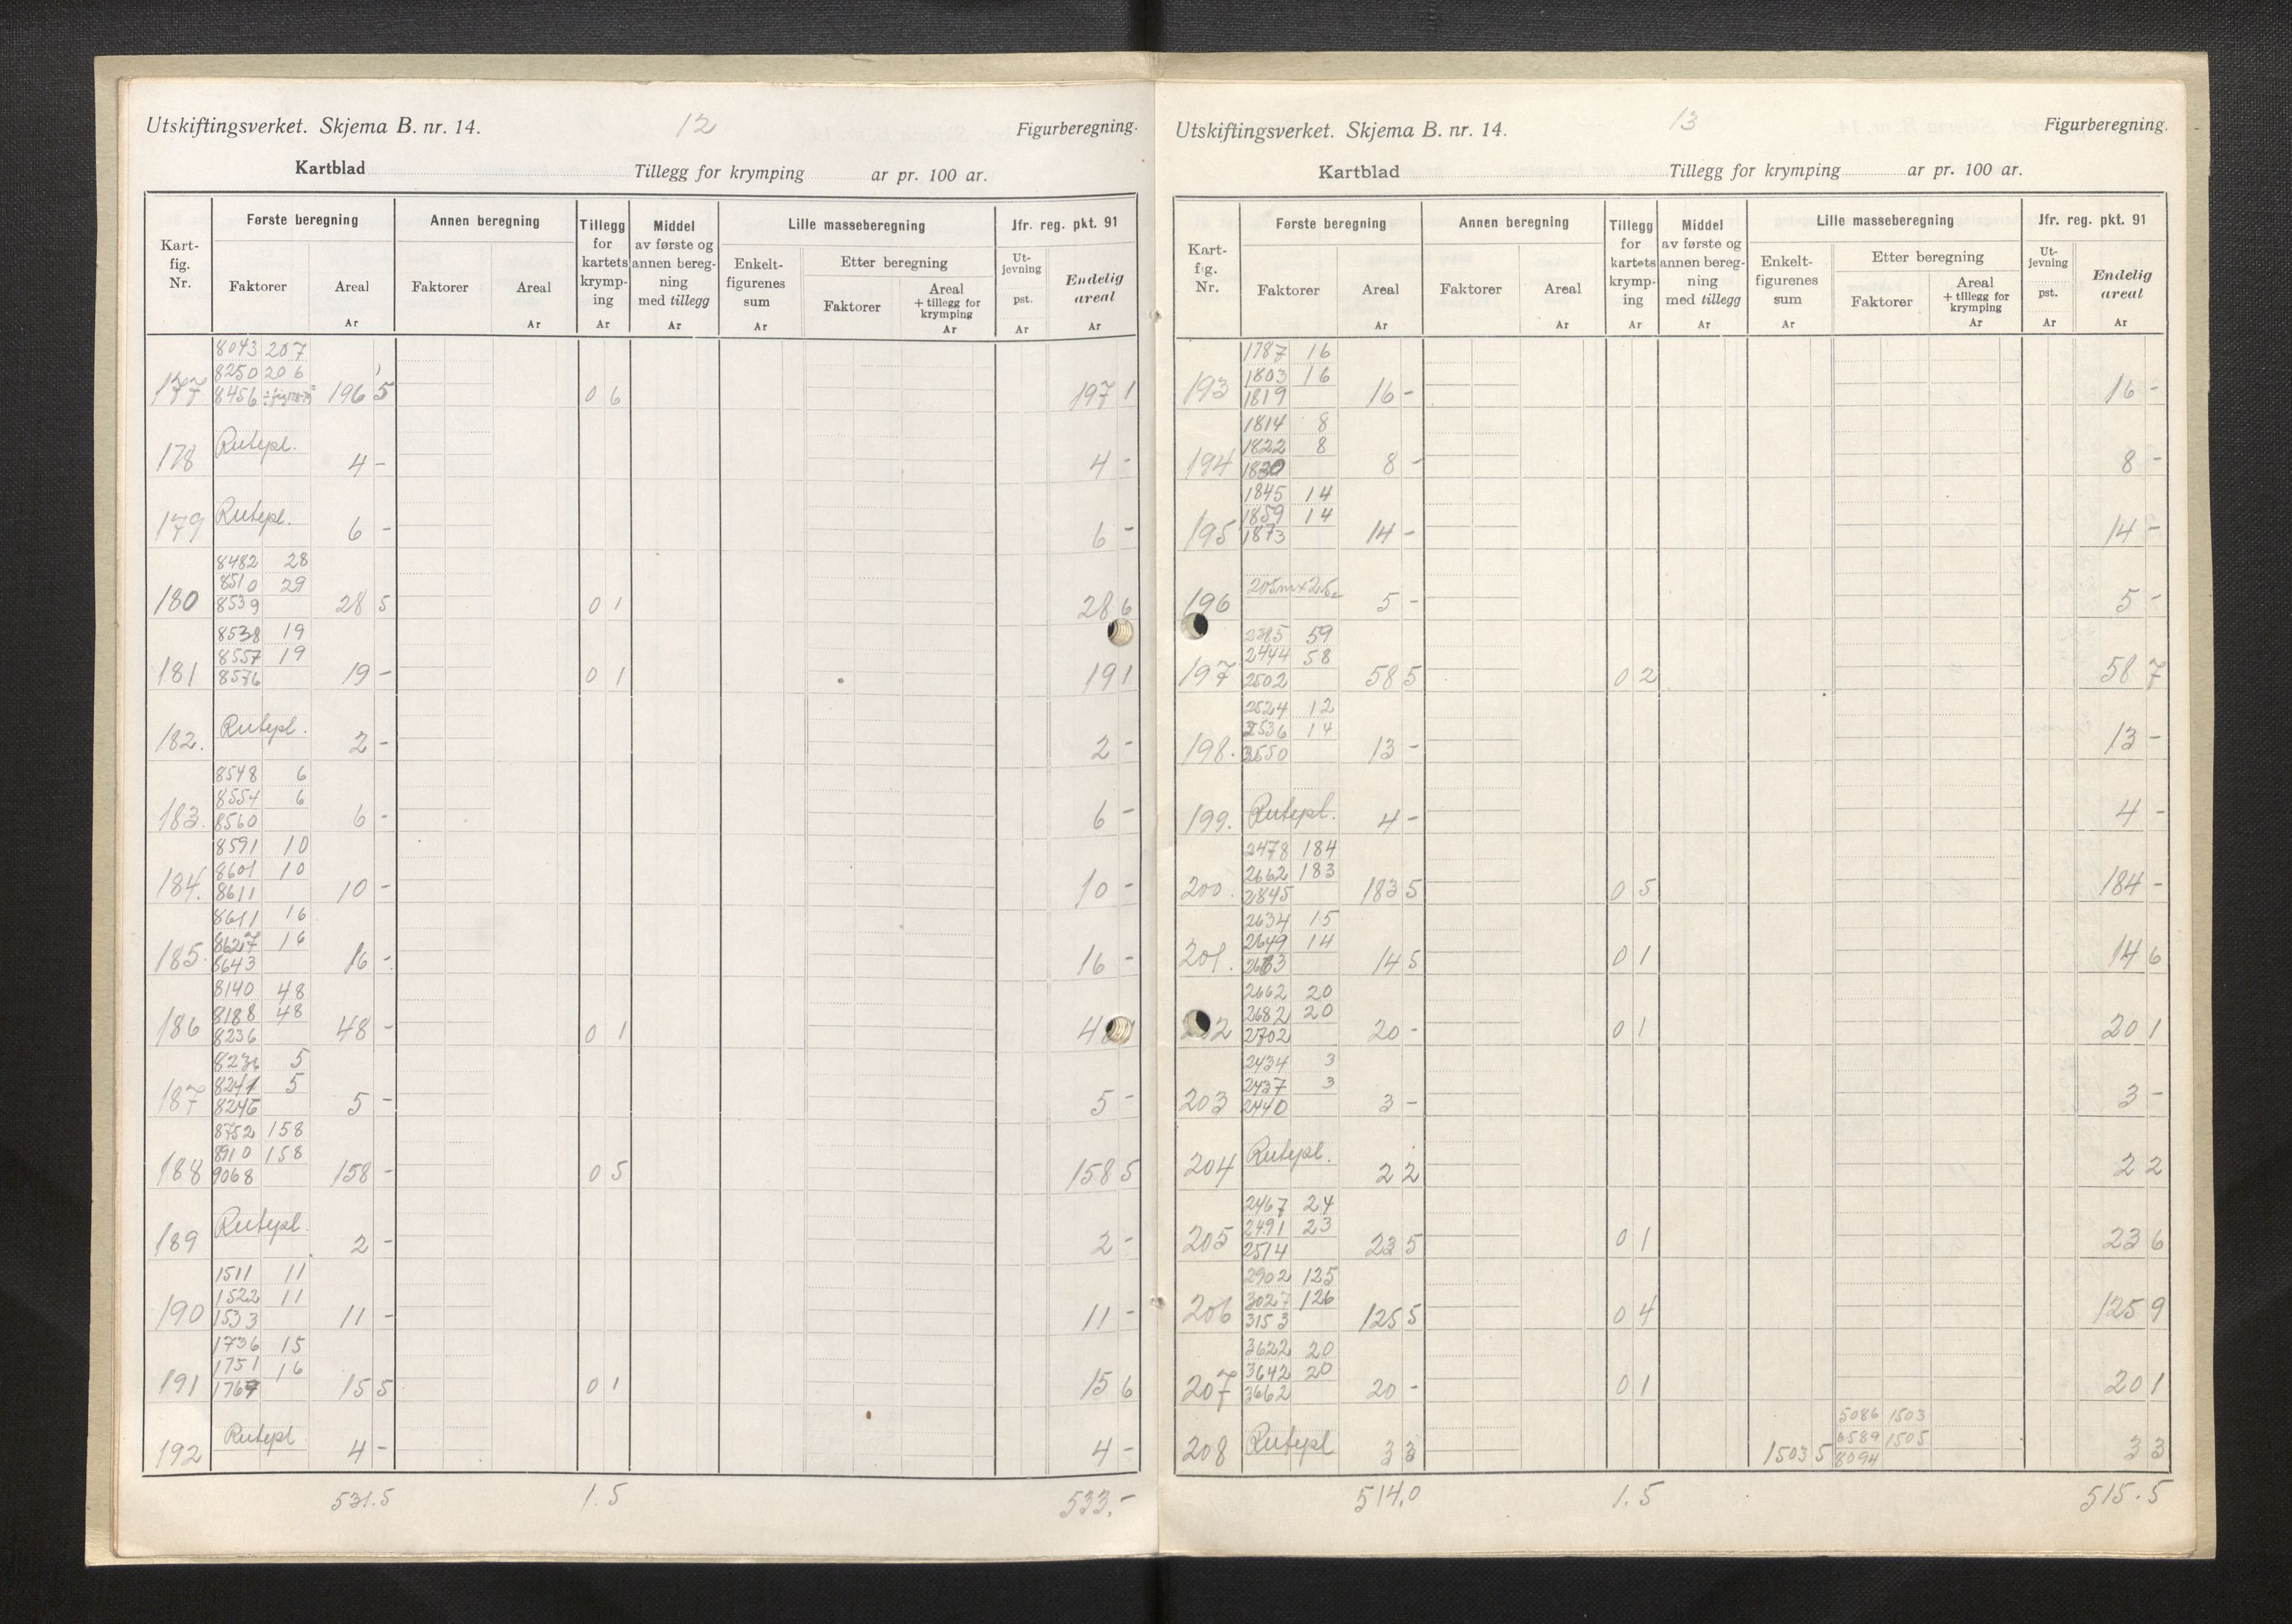 Utskiftingsverket. Skjema B. nr. 14. 12 Figurberegning.
Kartblad Tillegg for krymping ar pr. 100 ar.
Kart-fig. Nr. Første beregning Annen beregning Tillegg for kartets krymp-ing Middel av første og annen bereg-ning med tillegg Lille masseberegning Jfr. reg. pkt. 91
Faktorer Areal Faktorer Areal Enkelt-figurenes sum Etter beregning Ut-jevning pst. Endelig areal
Faktorer Areal + tillegg for krymping
Ar Ar Ar Ar Ar Ar Ar Ar
8043 207
8250 206
177 8456 196 5 0 6 197 1
178 Rutepl. 4 - 4 -
179 Rutepl. 6 - 6 -
8482 28
8510 29
180 8539 28 5 0 1 28 6
8538 19
8557 19
181 8576 19 - 0 1 19 1
182. Rutepl. 2 - 2 -
8548 6
8554 6
183. 8560 6 - 6 -
8591 10
8601 10
184. 8611 10 - 10 -
8611 16
8627 16
185. 8643 16 - 16 -
8140 48
8188 48
186 8236 48 - 0 1 48
8236 5
8241 5
187 8246 5 - 5 -
8752 158
8910 158
188 9068 158 - 0 5 158 5
189 Rutepl. 2 - 2 -
1511 11
1522 11
190 1533 11 - 11 -
1736 15
1751 16
191 1767 15 5 0 1 15 6
192 Rutepl 4 - 4 -
531.5 1.5 533.-
Utskiftingsverket. Skjema B. nr. 14. 13 Figurberegning.
Kartblad Tillegg for krymping ar pr. 100 ar.
Kart-fig. Nr. Første beregning Annen beregning Tillegg for kartets krymp-ing Middel av første og annen bereg-ning med tillegg Lille masseberegning Jfr. reg. pkt. 91
Faktorer Areal Faktorer Areal Enkelt-figurenes sum Etter beregning Ut-jevning pst. Endelig areal
Faktorer Areal + tillegg for krymping
Ar Ar Ar Ar Ar Ar Ar Ar
1787 16
1803 16
193 1819 16 - 16 -
1814 8
1822 8
194 1830 8 - 8 -
1845 14
1859 14
195 1873 14 - 14 -
196 5 - 5 -
2385 59
2444 58
197 2502 58 5 0 2 58 7
2524 12
2536 14
198. 2550 13 - 13 -
199. Rutepl. 4 - 4 -
2478 184
2662 183
200. 2845 183 5 0 5 184 -
2634 15
2649 14
201. 2663 14 5 0 1 14 6
2662 20
2682 20
202 2702 20 - 0 1 20 1
2434 3
2437 3
203 2440 3 - 3 -
204 Rutepl. 2 2 2 2
2467 24
2491 23
205 2514 23 5 0 1 23 6
2902 125
3027 126
206 3153 125 5 0 4 125 9
3622 20
3642 20
207 3662 20 - 0 1 20 1
5086 1503
6589 1505
208 Rutepl 3 3 1503 5 8094 3 3
514,0 1.5 515.5